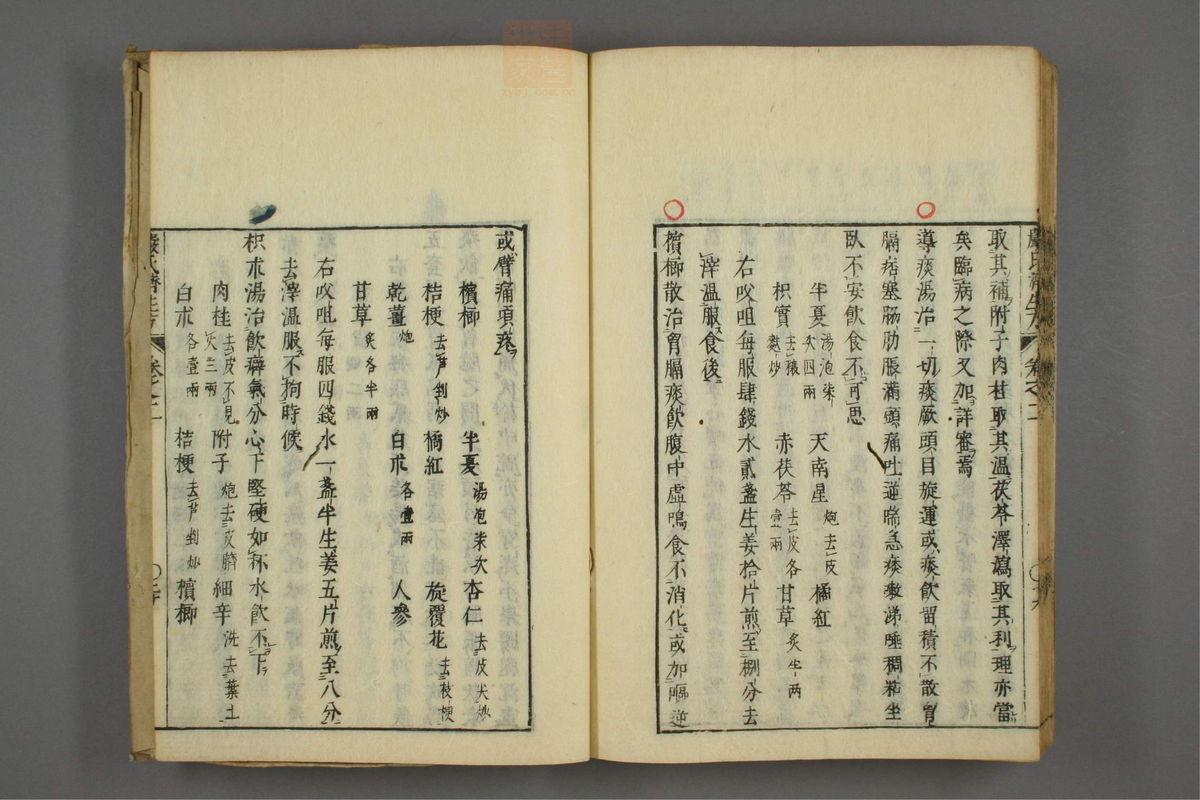 取其補附子肉桂取其溫茯苓澤瀉取其利理亦當
矣臨病之際又加詳審焉
導痰湯治一切痰厥頭目旋運或痰飲留積不散胃
膈痞塞肠肋脹滿頭痛吐逆喘急痰嗽涕唾稠粘坐
臥不安飲食不可思
半夏湯泡柒次四兩 天南星炮去皮 橘紅
枳實去穰麩炒 赤茯苓去皮各壹兩 甘草炙半两
右㕮咀每服肆錢水貳盞生姜拾片煎至捌分去
滓温服食後
檳榔散治胃膈痰飲腹中虛鳴食不消化或加嘔逆
或臂痛項疼
檳榔 半夏湯泡柒次 杏仁去皮尖炒
桔梗去芦剉炒 橘紅 旋覆花去枝梗
乾薑炮 白朮各壹兩 人參
甘草炙各半兩
右㕮咀每服四錢水一盞半生姜五片煎至八分
去滓温服不拘時候
枳朮湯治飲癖氣分心下堅硬如杯水飲不下
肉桂去皮不見火三兩 附子炮去皮臍 細辛洗去葉土
白朮各壹兩 桔梗去芦剉炒 檳榔
卷之二